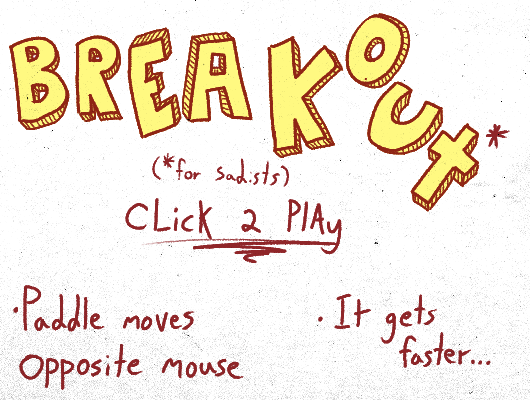 BREAKOUT*
(*for sadists)
CLicK 2 PlAy
·Paddle moves
Opposite mouse
·It gets
faster...